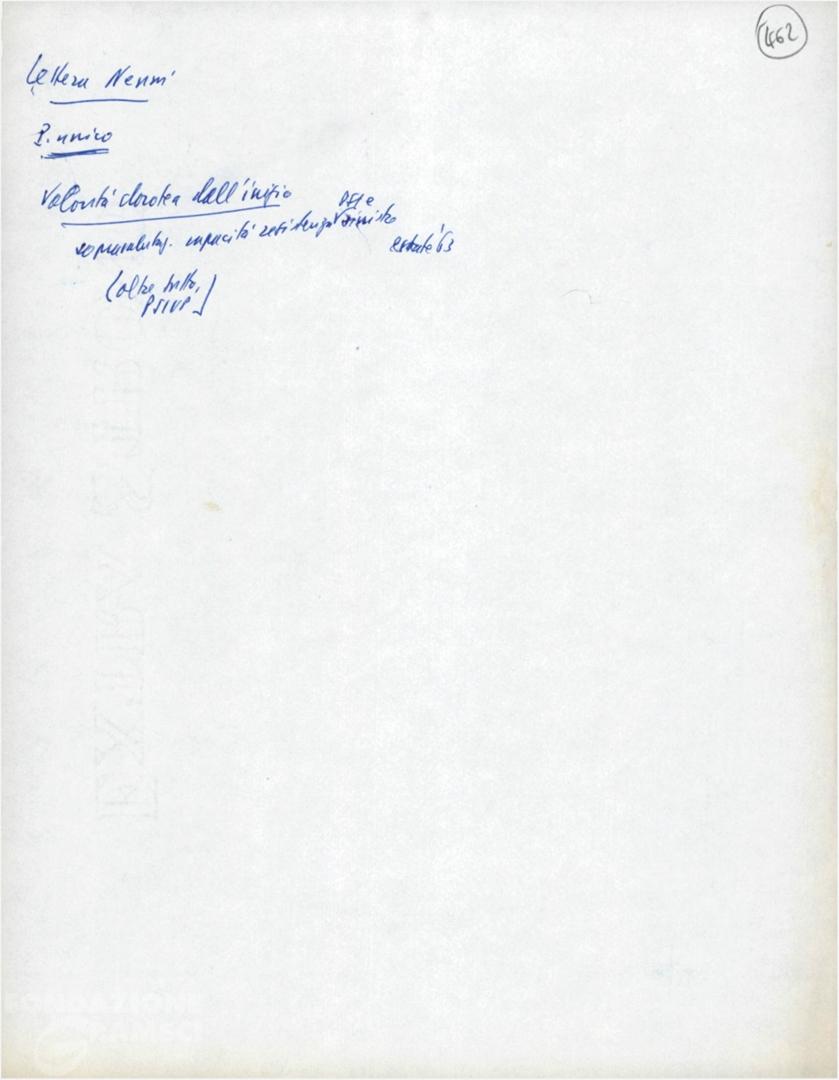 462
Lettera Nenni
P. unico
Volontà dorotea dall'inizio
sopravalutaz. capacità resistenza PSI e sinistre
estate '63
(oltre tutto,
PSIUP)
EXTRA
FONDAZIONE
GRAMSCI